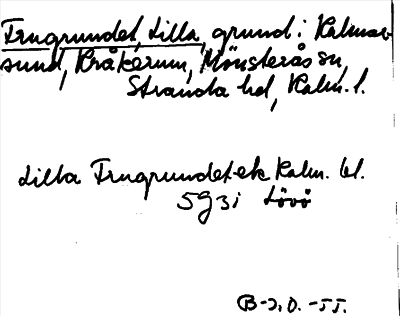 Trugrundet, Lilla, grund i Kalmar
sund, Kråkerum, Mönsterås sn,
Stranda hd, Kalm. l.
Lilla Trugrundet ek Kalm. bl.
5g3i Lövö
B-J.O. -55.